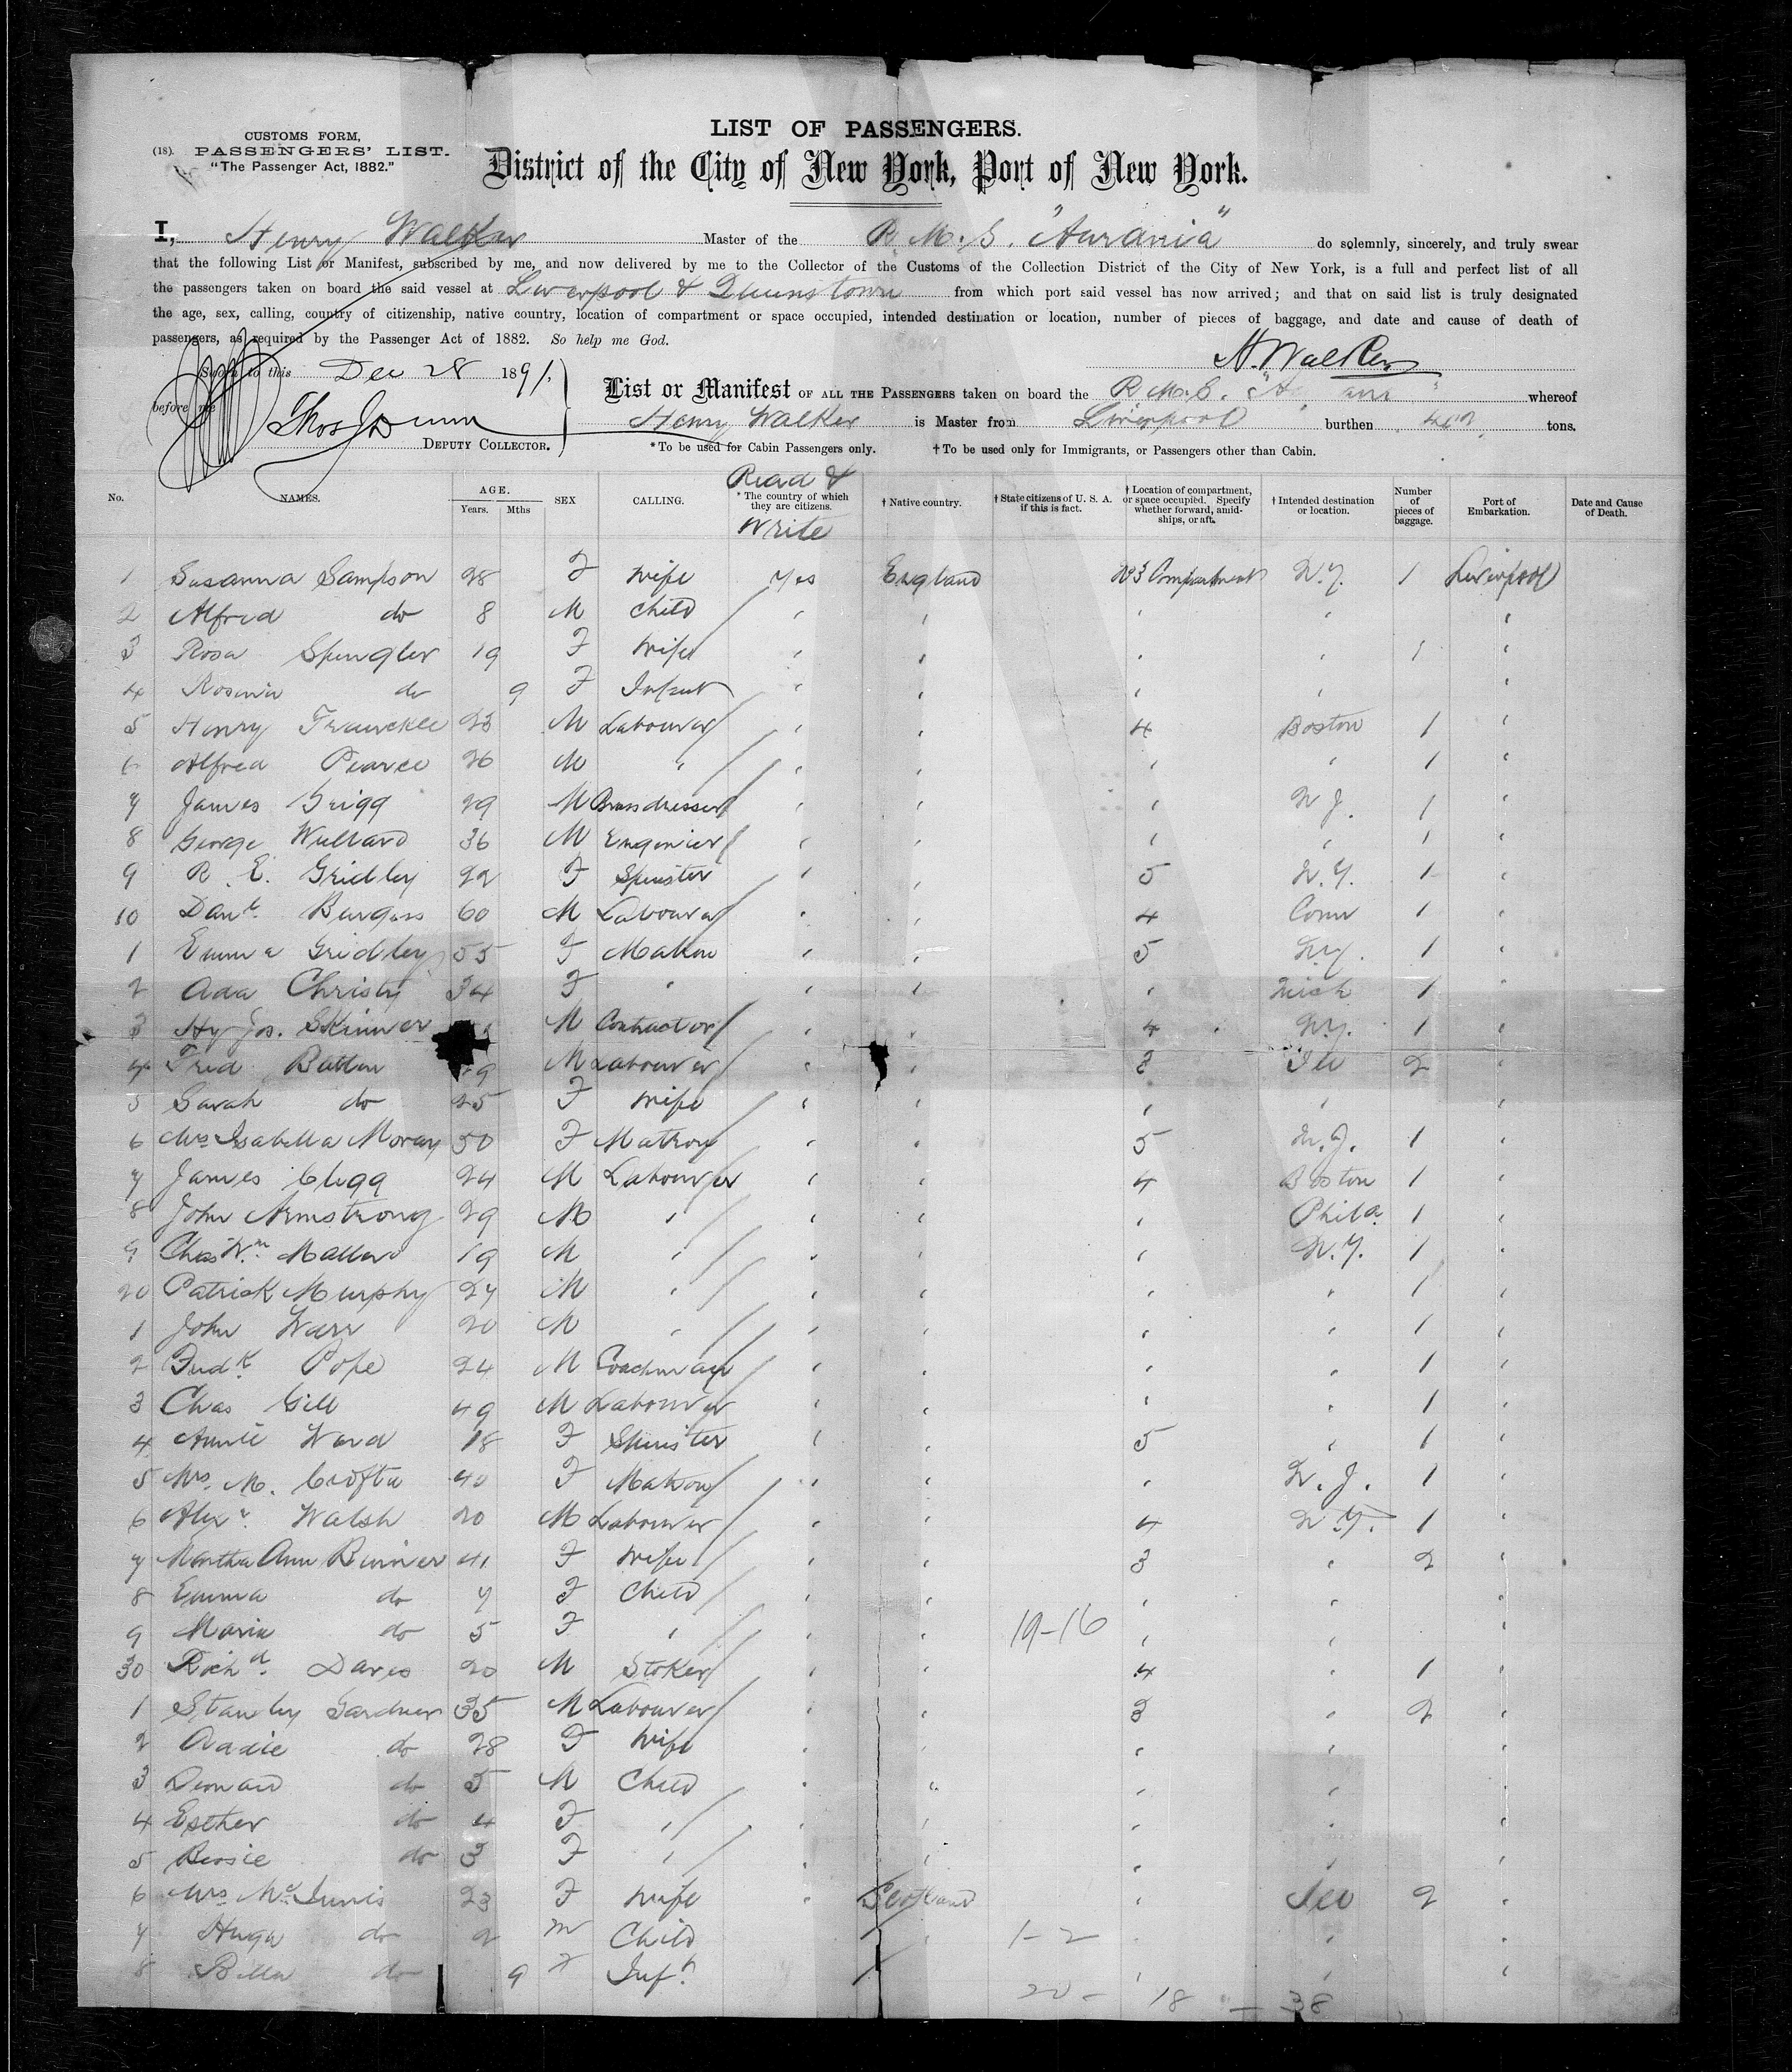 LIST OF PASSENGERS.
CUSTOMS FORM,
(18). PASSENGERS' LIST.
"The Passenger Act, 1882."
District of the City of New York, Port of New York.
I, Henry Walker Master of the R.M.S. "Aurania" do solemnly, sincerely, and truly swear
that the following List or Manifest, subscribed by me, and now delivered by me to the Collector of the Customs of the Collection District of the City of New York, is a full and perfect list of all
the passengers taken on board the said vessel at Liverpool & Queenstown from which port said vessel has now arrived; and that on said list is truly designated
the age, sex, calling, country of citizenship, native country, location of compartment or space occupied, intended destination or location, number of pieces of baggage, and date and cause of death of
passengers, as required by the Passenger Act of 1882. So help me God.
H. Walker
Sworn to this Dec 28 1891.
before me
Thos J Dunn
DEPUTY COLLECTOR.
List or Manifest OF ALL THE PASSENGERS taken on board the R.M.S. whereof
Henry Walker is Master from Liverpool burthen tons.
*To be used for Cabin Passengers only. †To be used only for Immigrants, or Passengers other than Cabin.
Read &
Write
No. NAMES. AGE. Years. Mths SEX CALLING. * The country of which they are citizens. † Native country. † State citizens of U. S. A. if this is fact. † Location of compartment, or space occupied. Specify whether forward, amidships, or aft. † Intended destination or location. Number of pieces of baggage. Port of Embarkation. Date and Cause of Death.
1 Susanna Sampson 28 F Wife Yes England No 3 Compartment N.Y. 1 Liverpool
2 Alfred do 8 M Child " " " " "
3 Rosa Spengler 19 F Wife " " " " 1 "
4 Rosina do 9 F Infant " " " " "
5 Henry 23 M Labourer " " 4 Boston 1 "
6 Alfred Pearce 26 M " " " " " 1 "
7 James Grigg 29 M Brassdresser " " " N J. 1 "
8 George Willard 36 M Engenier " " " " 1 "
9 R. E. Gridley 22 F Spinster " " 5 N.Y. 1 "
10 Danl. Burgess 60 M Labourer " " 4 Conn 1 "
1 Emma Gridley 55 F Matron " " 5 N.Y. 1 "
2 Ada Christy 34 F " " " " Mich 1 "
3 Hy Jos. Skinner M Contractor " " 4 N.Y. 1 "
4 Fred 9 M Labourer " " 3 Ill 2 "
5 Sarah do 25 F Wife " " " " "
6 Mrs Isabella Moray 50 F Matron " " 5 N.J. 1 "
7 James Clegg 24 M Labourer " " 4 Boston 1 "
8 John Armstrong 29 M " " " " Phila. 1 "
9 Chas Wm. 19 M " " " " N.Y. 1 "
20 Patrick Murphy 27 M " " " " " 1 "
1 John Warr 20 M " " " " " 1 "
2 Fredk. Pope 24 M Coachman " " " " 1 "
3 Chas Gill 49 M Labourer " " " " 1 "
4 Annie Ward 18 F Spinster " " 5 " 1 "
5 Mrs. M. Crofta 40 F Matron " " " N.J. 1 "
6 Alexr. Walsh 20 M Labourer " " 4 N.Y. 1 "
7 Martha Ann 41 F Wife " " 3 " 2 "
8 Emma do 7 F Child " " " " "
9 Maria do 5 F " " " 19-16 " " "
30 Richd. Davis 20 M Stoker " " 4 " 1 "
1 Stanley Gardner 35 M Labourer " " 3 " 2 "
2 Addie do 28 F Wife " " " " "
3 do 5 M Child " " " " "
4 Esther do 4 F " " " " " "
5 Bessie do 3 F " " " " " "
6 Mrs McInnis 23 F Wife " Scotland " Ill 2 "
7 Hugh do 2 M Child " 1-2 " " "
8 Bella do 9 F Inft. " " "
20 - 18 - 38